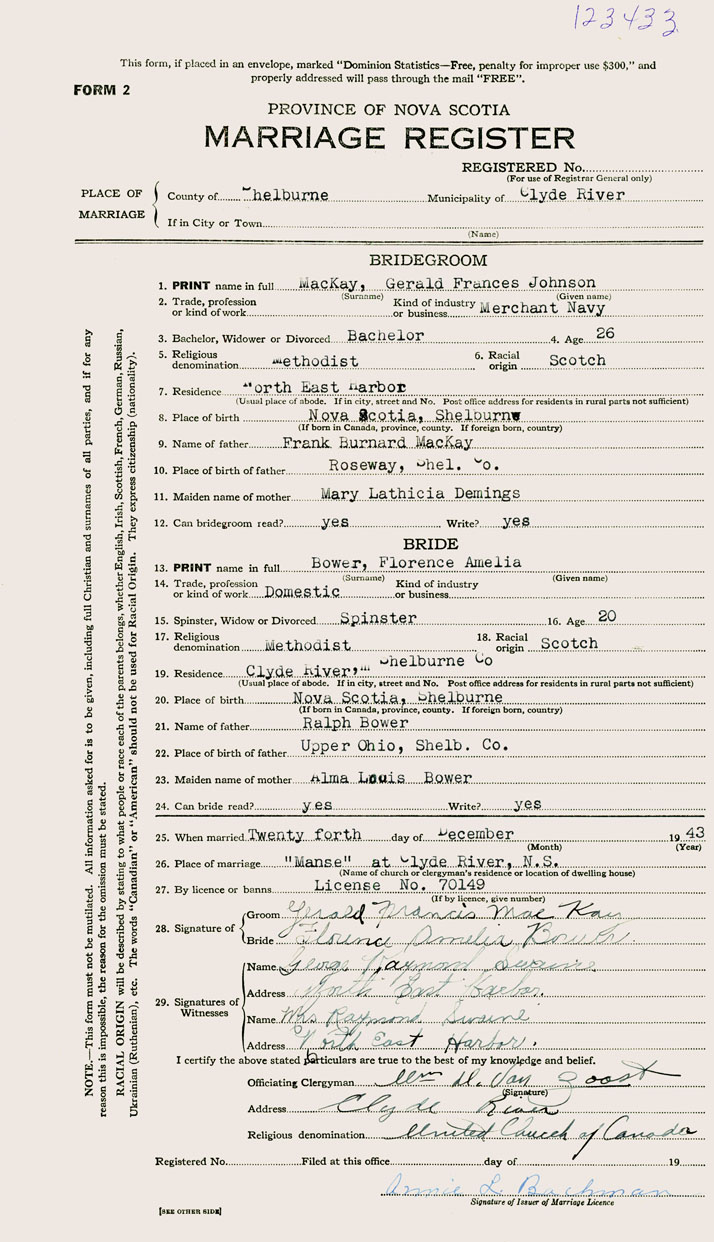 123433
This form, if placed in an envelope, marked "Dominion Statistics—Free, penalty for improper use $300," and
properly addressed will pass through the mail "FREE".
FORM 2
PROVINCE OF NOVA SCOTIA
MARRIAGE REGISTER
REGISTERED No.
(For use of Registrar General only)
PLACE OF MARRIAGE
County of Shelburne Municipality of Clyde River
If in City or Town
(Name)
BRIDEGROOM
1. PRINT name in full MacKay, Gerald Frances Johnson
(Surname) (Given name)
2. Trade, profession or kind of work Kind of industry or business Merchant Navy
3. Bachelor, Widower or Divorced Bachelor 4. Age 26
5. Religious denomination Methodist 6. Racial origin Scotch
7. Residence North East Harbor
(Usual place of abode. If in city, street and No. Post office address for residents in rural parts not sufficient)
8. Place of birth Nova Scotia, Shelburne
(If born in Canada, province, county. If foreign born, country)
9. Name of father Frank Burnard MacKay
10. Place of birth of father Roseway, Shel. Co.
11. Maiden name of mother Mary Lathicia Demings
12. Can bridegroom read? yes Write? yes
BRIDE
13. PRINT name in full Bower, Florence Amelia
(Surname) (Given name)
14. Trade, profession or kind of work Domestic Kind of industry or business
15. Spinster, Widow or Divorced Spinster 16. Age 20
17. Religious denomination Methodist 18. Racial origin Scotch
19. Residence Clyde River, Shelburne Co
(Usual place of abode. If in city, street and No. Post office address for residents in rural parts not sufficient)
20. Place of birth Nova Scotia, Shelburne
(If born in Canada, province, county. If foreign born, country)
21. Name of father Ralph Bower
22. Place of birth of father Upper Ohio, Shelb. Co.
23. Maiden name of mother Alma Louis Bower
24. Can bride read? yes Write? yes
25. When married Twenty forth day of December 1943
(Month) (Year)
26. Place of marriage "Manse" at Clyde River, N.S.
(Name of church or clergyman's residence or location of dwelling house)
27. By licence or banns License No. 70149
(If by licence, give number)
28. Signature of
Groom Gerald Francis MacKay
Bride Florence Amelia Bower
29. Signatures of Witnesses
Name George Raymond Swaine
Address North East Harbor.
Name Mrs Raymond Swaine
Address North East Harbor.
I certify the above stated particulars are true to the best of my knowledge and belief.
Officiating Clergyman Wm. Van Zoost
(Signature)
Address Clyde River
Religious denomination United Church of Canada
Registered No. Filed at this office day of 19
Annie L. Bachman
Signature of Issuer of Marriage Licence
[SEE OTHER SIDE]
NOTE.—This form must not be mutilated. All information asked for is to be given, including full Christian and surnames of all parties, and if for any
reason this is impossible, the reason for the omission must be stated.
RACIAL ORIGIN will be described by stating to what people or race each of the parents belongs, whether English, Irish, Scottish, French, German, Russian,
Ukrainian (Ruthenian), etc. The words "Canadian" or "American" should not be used for Racial Origin. They express citizenship (nationality).